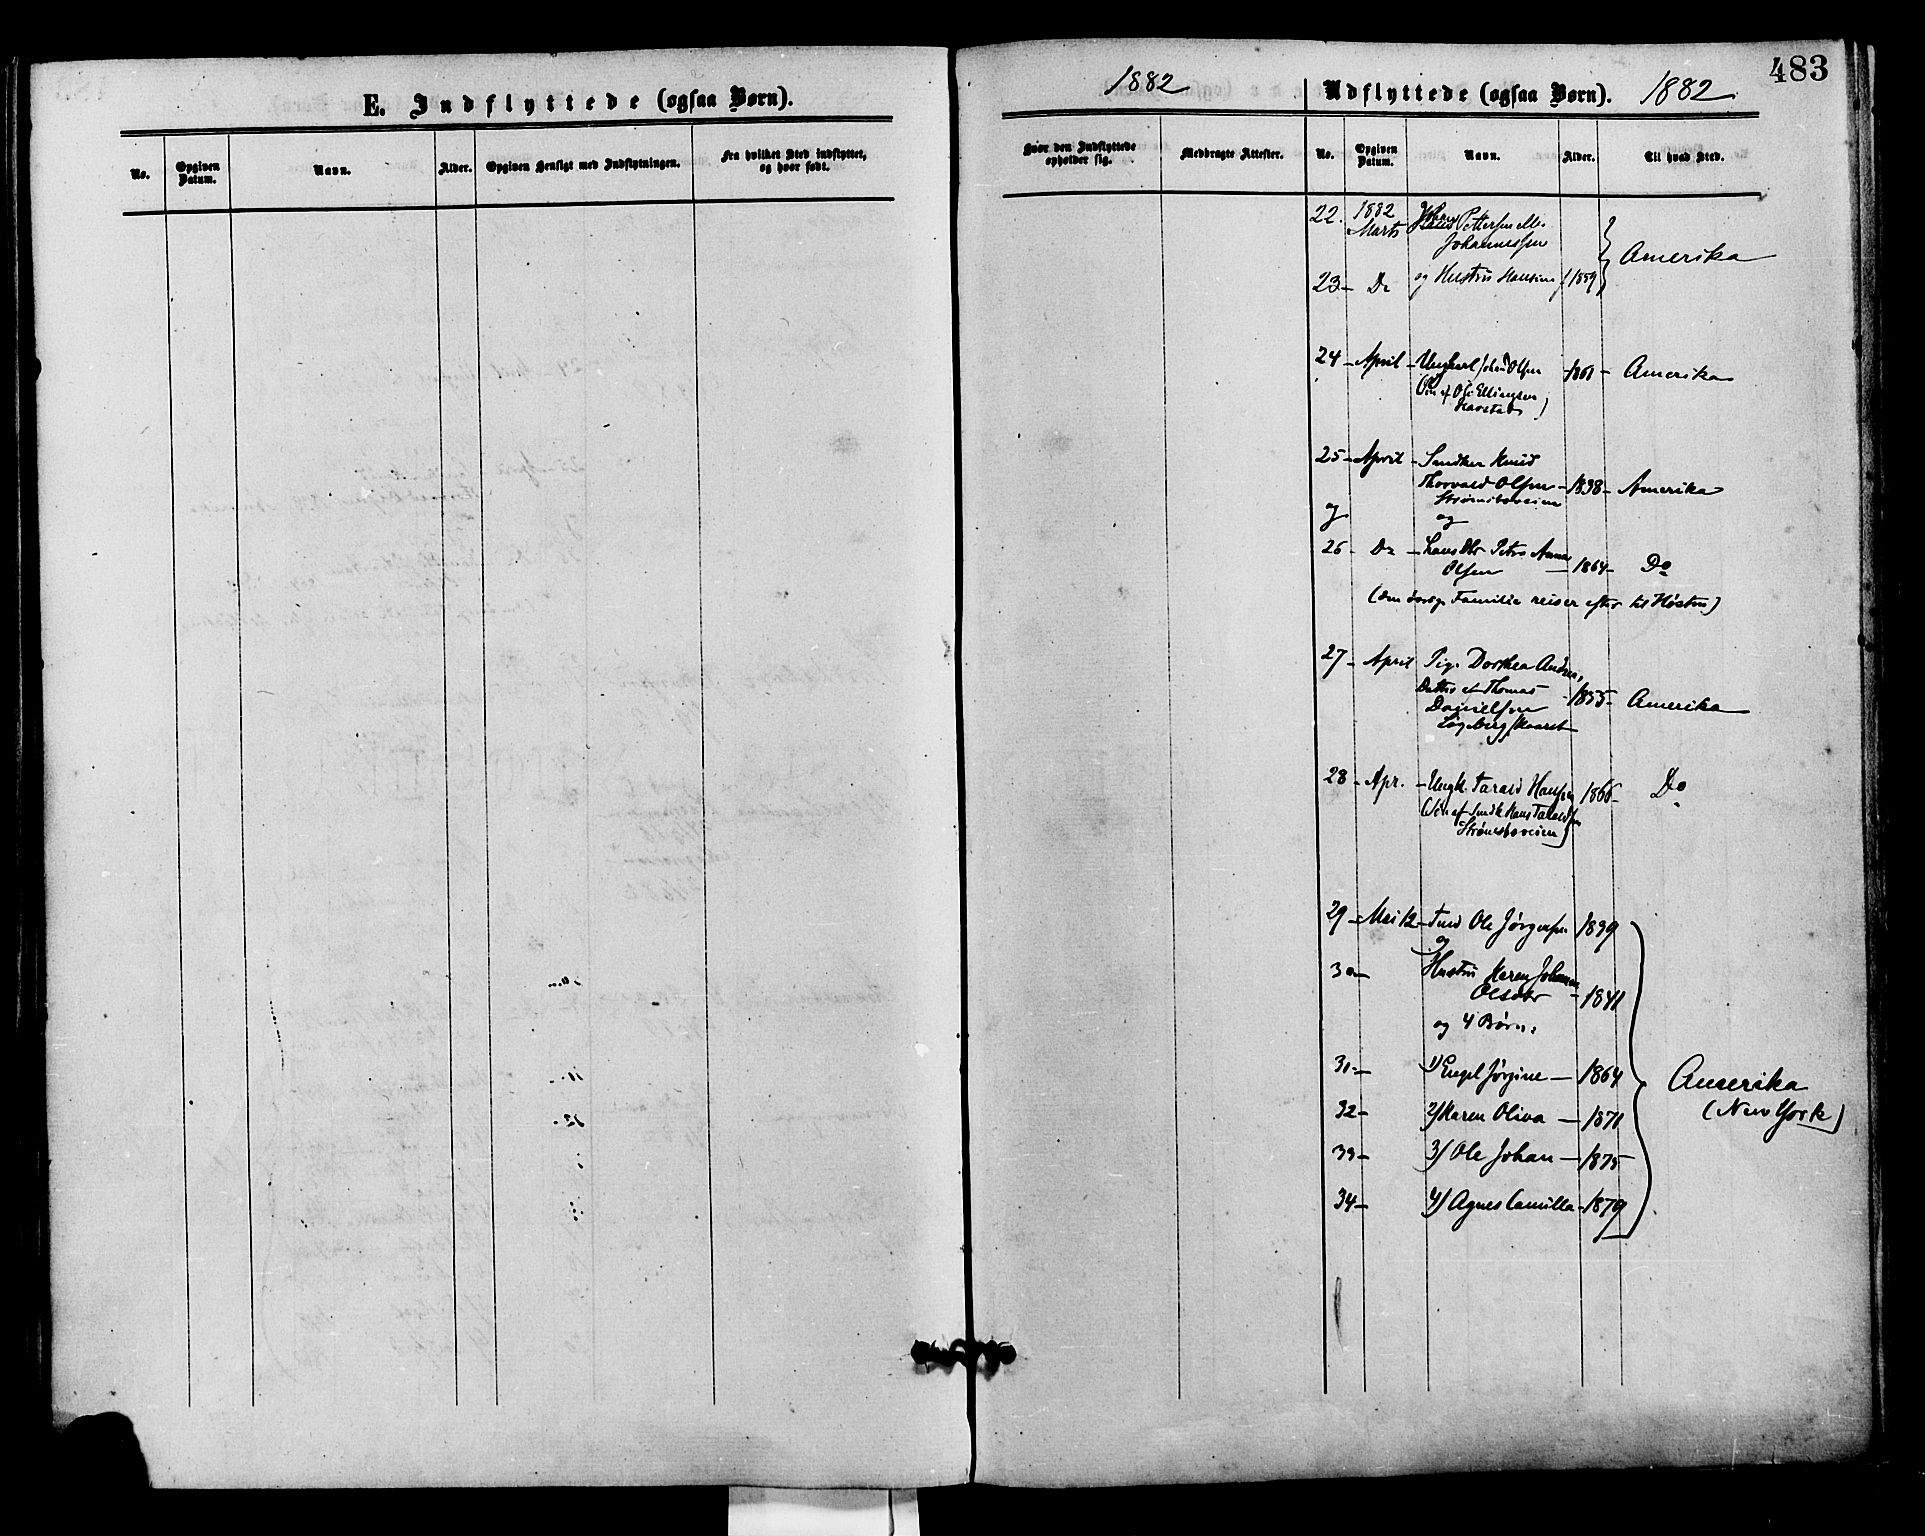 E. Indflyttede (ogsaa Børn).
No.
Opgiven Datum.
Navn.
Alder.
Opgiven Hensigt med Indflytningen.
Fra hvilket Sted indflyttet, og hvor født.
483
1882
Udflyttede (ogsaa Børn). 1882
Hvor den Indflyttede opholder sig.
Medbragte Attester.
No.
Opgiven Datum.
Navn.
Alder.
Til hvad Sted.
22. 1882 Marts Pettersen ell.
Johannessen
Amerika
23 – Do og Hustru Hansine f. 1859
24 – April – Ungkarl Johan Olsen – 1861 – Amerika
(Søn af Ole Ellingsen
)
25 – April – Snedker Knud
Thorvald Olsen – 1838 – Amerika
Strømsboveien
og og
26 – Do – Petra Anna
Olsen – 1864 – Do
(den øvrige Familie reiser efter til Høsten)
27 – April Pige Dorthea Andrea,
Datter af Thomas – 1855 – Amerika
Danielsen
Løgebergskaaret
28 – Apr. – Ungk. Tarald Hansen 1866 – Do
(Søn af Snedk Hans Taraldsen
Strømsboveien)
29 – Mai 12 – Ole Jørgensen 1839
og
30 – Hustru Karen Johanne
Olsdtr – 1841
og 4 Børn:
31 – 1) Engel Jørgine – 1864
Amerika
(New York)
32 – 2) Karen Oliva – 1871
33 – 3) Ole Johan – 1875
34 – 4) Agnes Camilla – 1879